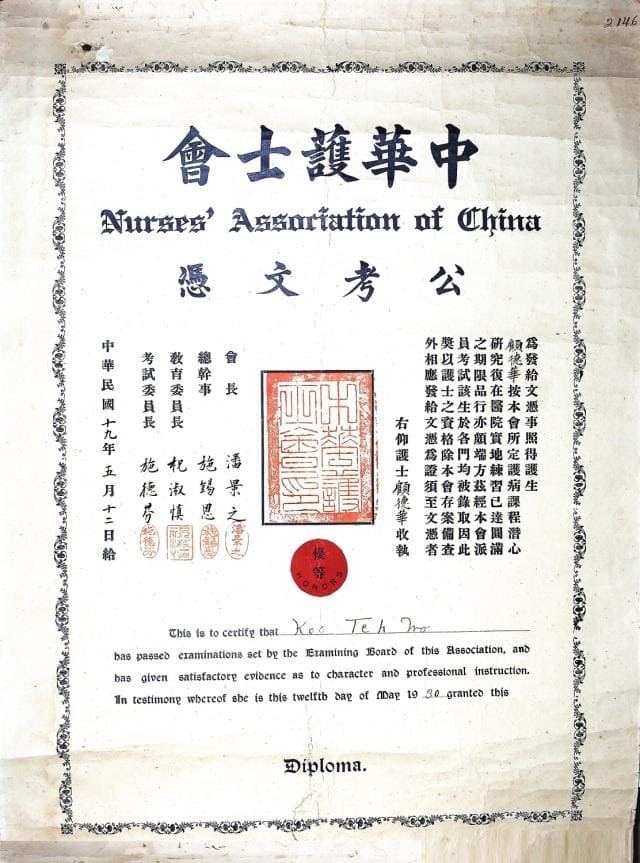 2146
中華護士會
Nurses' Association of China
公考文憑
為發給文憑事照得護生
顧德華按本會所定護病課程潛心
研究復在醫院實地練習已達圓滿
之期限品行亦頗端方茲經本會派
員考試該生於各門均被錄取因此
獎以護士之資格除本會存案備查
外相應發給文憑為證須至文憑者
右仰護士顧德華收執
中華護
士會印
會長 潘景之
總幹事 施錫恩
教育委員長 祝淑慎
考試委員長 施德芬
中華民國十九年五月十二日給
優等
HONORS
This is to certify that Koo Teh Wo
has passed examinations set by the Examining Board of this Association, and
has given satisfactory evidence as to character and professional instruction.
In testimony whereof she is this twelfth day of May 1930 granted this
Diploma.